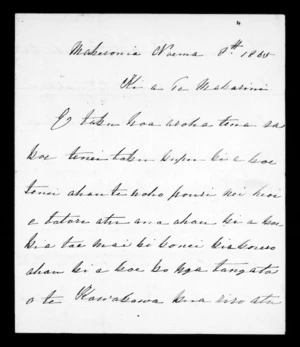 Makeronia Noema 8th 1864
Ki a Te Makarini
E taku hoa aroha tena ra
koe tenei taku kupu ki a koe
tenei ahau te noho pouri nei hoi
e tatari atu ana ahau ki a koe
kia tae mai ki konei kia korero
ahau ki a koe ko nga tangata
o te Kawakawa kua riro atu